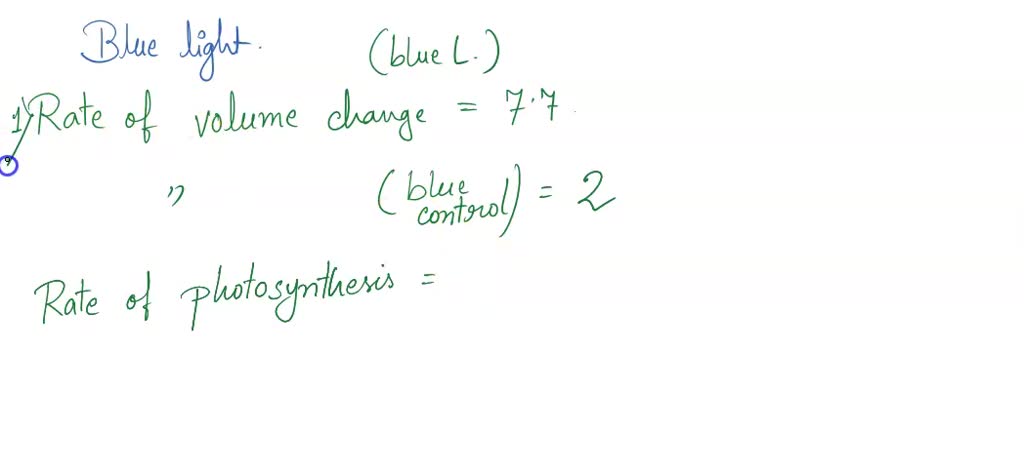 Blue light. (blue L.)
1) Rate of volume change = 7.7
" (blue control) = 2
Rate of photosynthesis =